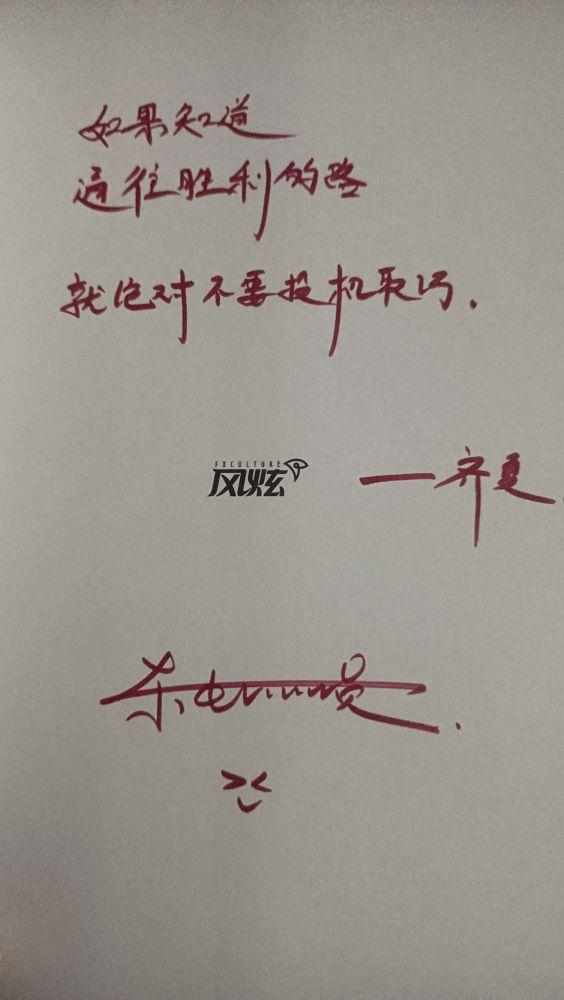 如果知道
通往胜利的路
就绝对不要投机取巧.
FXCULTURE
风炫
——齐夏